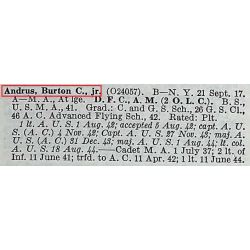 Andrus, Burton C., jr. (O24057). B—N. Y. 21 Sept. 17.
A—M. A., At lge. D. F. C., A. M. (2 O. L. C.). B. S.,
U. S. M. A., 41. Grad.: C. and G. S. Sch., 26 G. S. Cl.,
46 A. C. Advanced Flying Sch., 42. Rated: Plt.
1 lt. A. U. S. 1 Aug. 42; accepted 5 Aug. 42; capt. A.
U. S. (A. C.) 4 Nov. 42; Capt. A. U. S. 27 Nov. 43; maj. A.
U. S. (A. C.) 21 Dec. 43; maj. A. U. S. 1 Aug. 44; lt. col.
A. U. S. 18 Aug. 44.——Cadet M. A. 1 July 37; 2 lt. of
Inf. 11 June 41; trfd. to A. C. 11 Apr. 42; 1 lt. 11 June 44.